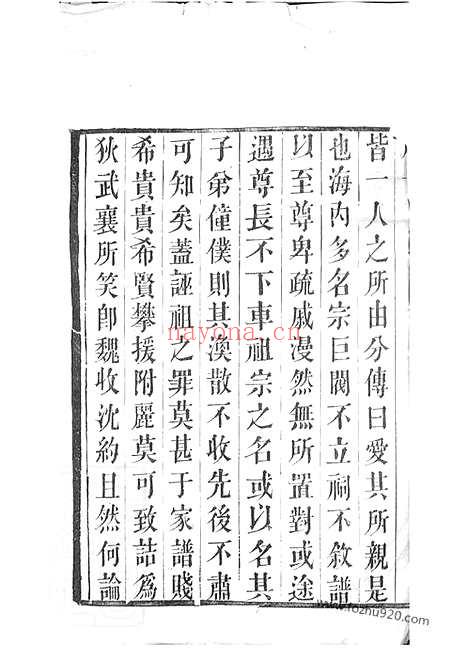 皆一人之所由分傳曰愛其所親是
也海內多名宗巨閥不立祠不敘譜
以至尊卑疏戚漫然無所置對或途
遇尊長不下車祖宗之名或以名其
子弟僮僕則其渙散不收先後不肅
可知矣蓋誣祖之罪莫甚于家譜賤
希貴貴希賢攀援附麗莫可致詰為
狄武襄所笑卽魏收沈約且然何論
nayona.cn
www.fozhu920.com